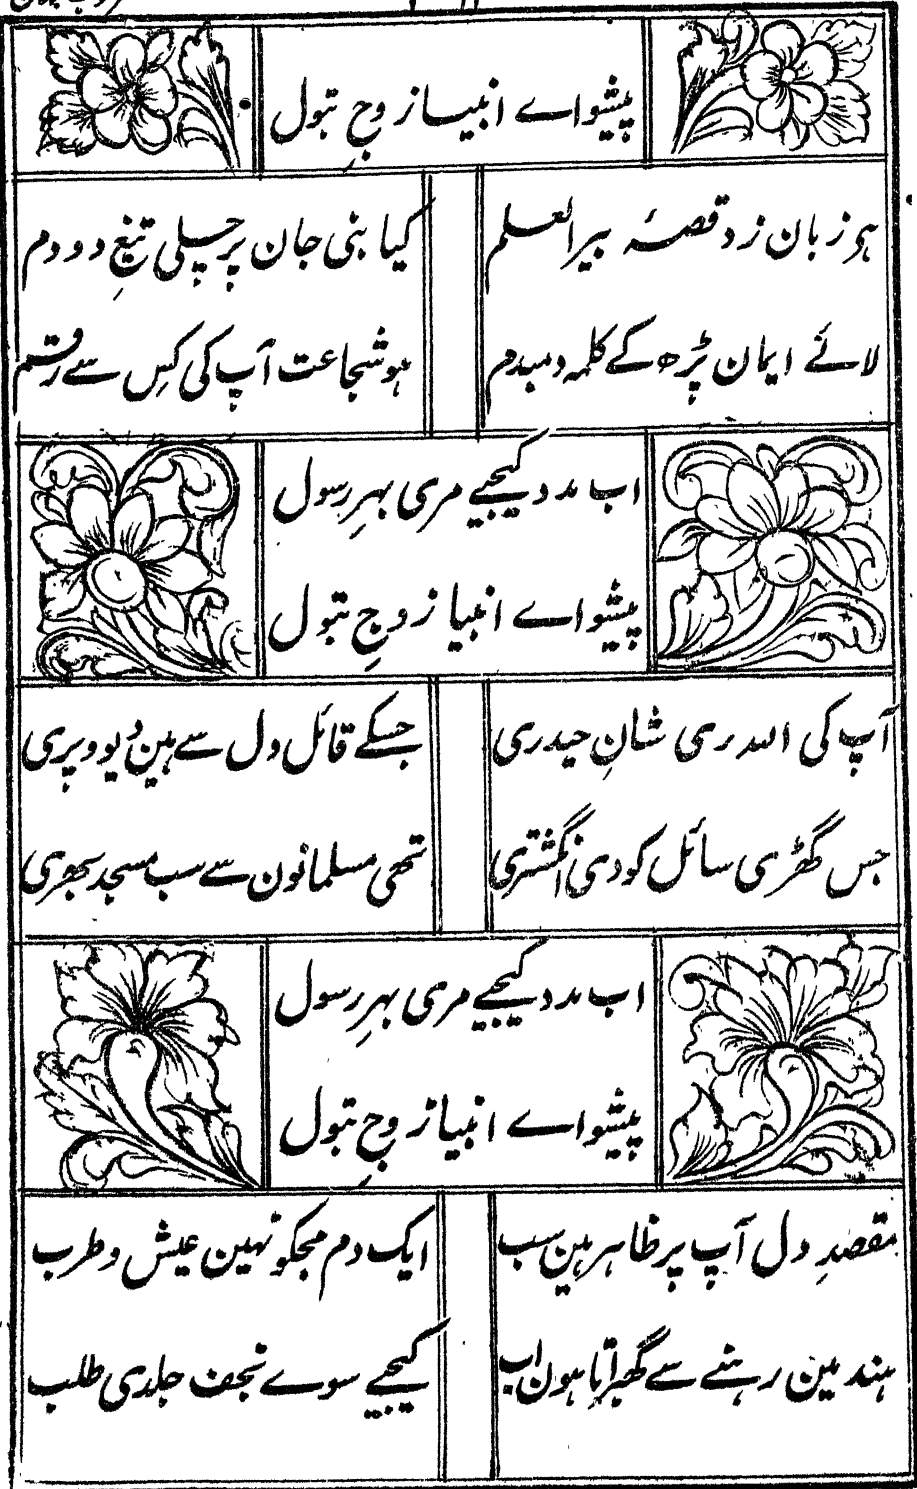 پیشواے انبیا زوجِ بتول
ہر زبان زد قصۂ بیر العلم کیا بنی جان پر چلی تیغِ دو دم
لائے ایمان پڑھ کے کلمہ دمبدم ہو شجاعت آپ کی کس سے رقم
اب مدد کیجیے مری بہرِ رسول
پیشواے انبیا زوجِ بتول
آپ کی اللہ ری شانِ حیدری جسکے قائل دل سے ہین دیو و پری
جس گھڑی سائل کو دی انگشتری تھی مسلمانون سے سب مسجد بھری
اب مدد کیجیے مری بہرِ رسول
پیشواے انبیا زوجِ بتول
مقصدِ دل آپ پر ظاہر ہین سب ایک دم مجکو نہین عیش و طرب
ہند مین رہنے سے گھبراتا ہون اب کیجیے سوے نجف جلدی طلب